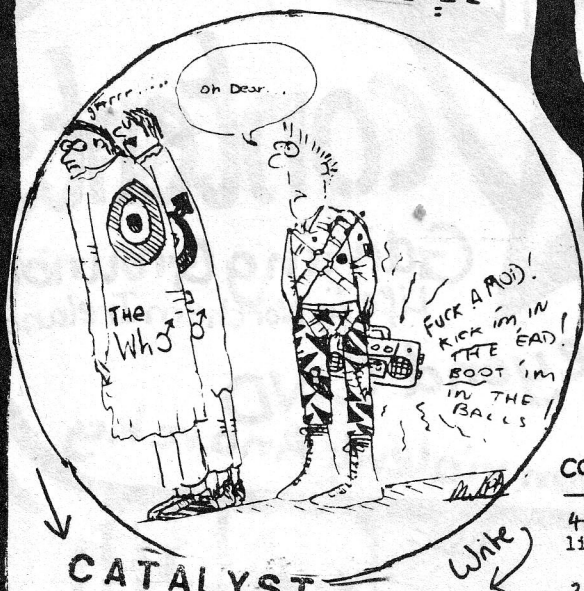 grrrr......
Oh Dear...
THE
Who
FUCK A MOD!
KICK 'im IN
THE EAD!
BOOT 'IM
IN THE
BALLS!
CO
4
li
Write
CATALYST